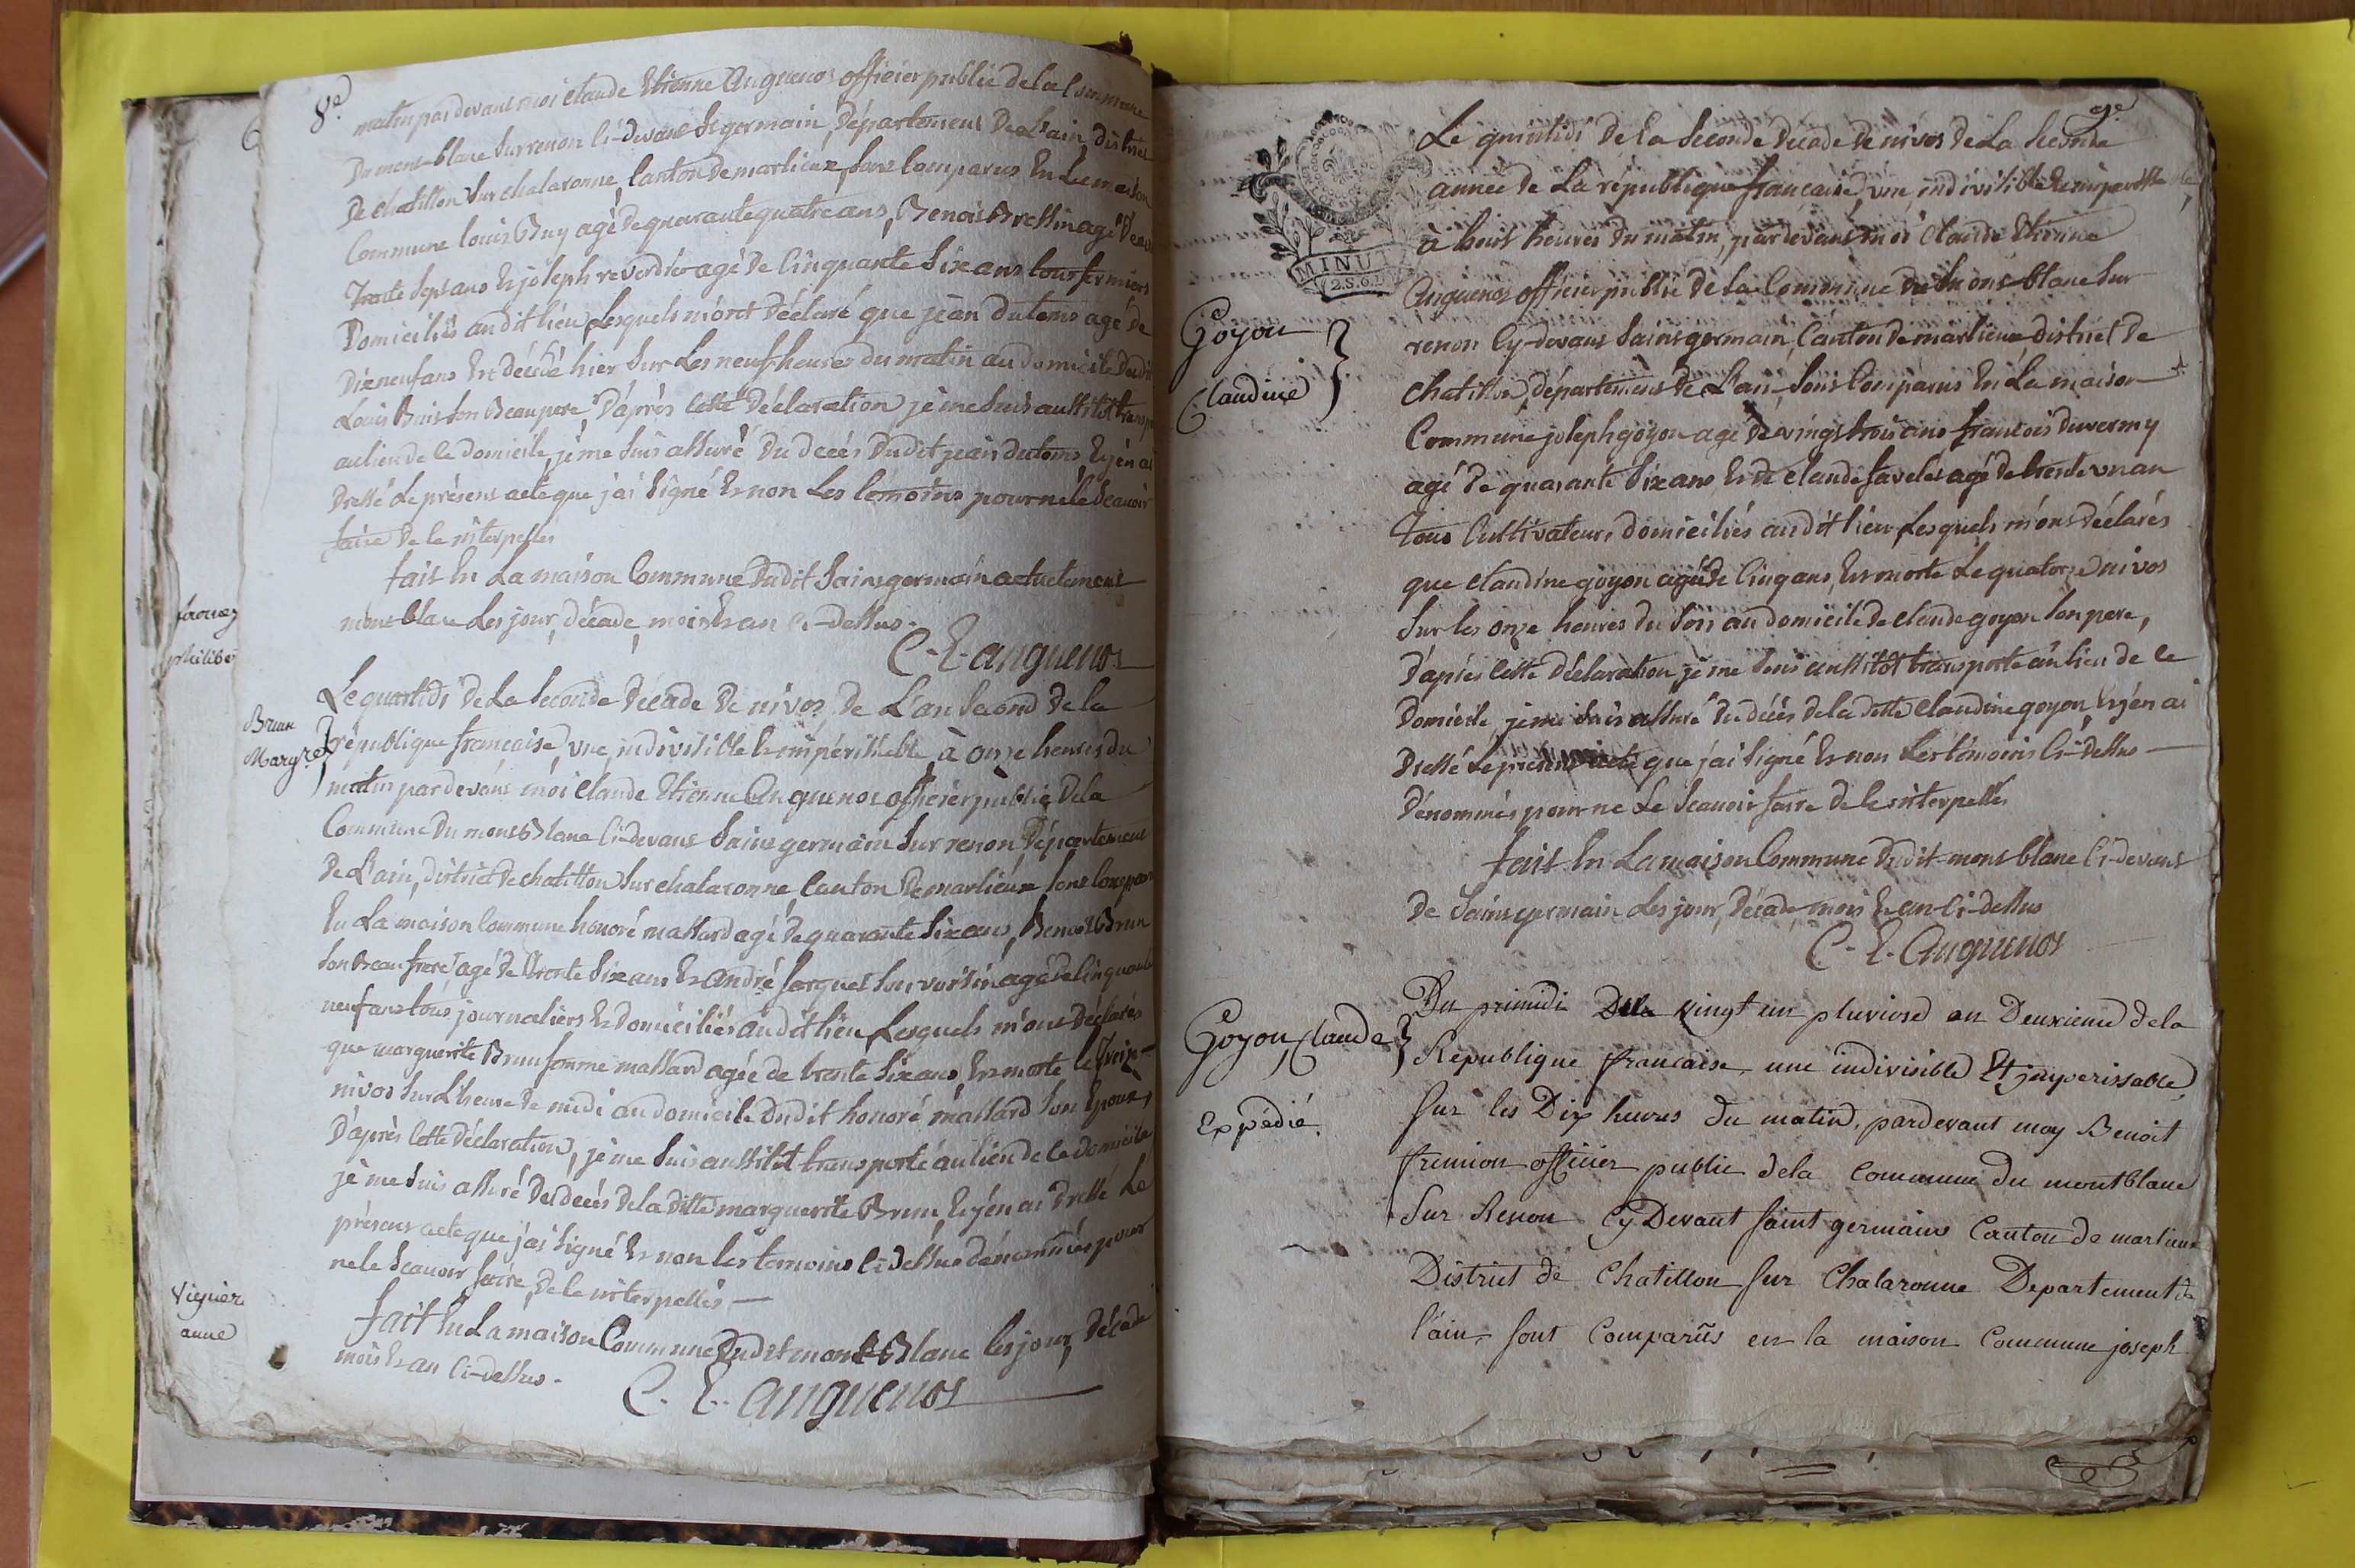 8e
matin pardevant moi claude Etienne Anguenos officier public de la Commune
Du mont-blanc sur renon ci-devant st germain, Département De L'ain, district
De chatillon sur chalaronne, Canton de marlieux, sont Comparus En La maison
Commune louis Buy agé de quarante quatre ans, Benoit Bressin agé de
Trente sept ans Et joseph reverdier agé de Cinquante Sixe ans tous fermiers
Domiciliés audit lieu, Lesquels m'ont Déclaré que jean dutems agé de
Dixneuf ans Est décédé hier sur Les neuf heures du matin au domicile dudit
Louis Buis son Beaupere, D'après Cette Déclaration je me suis aussitôt
au lieu de ce domicile, je me suis assuré Du Decés Dudit jean dutems Et j'en ai
Dressé Le présent acte que j'ai Signé Et non Les temoins pour ne le Scavoir
faire De ce interpellés
fait En La maison Commune Dudit Saint germain actuelement
mont blanc Les jour, décade, mois Et an Ci-dessus.
C. E. anguenos
philibe
Brun
Margte
Le quartidi De La Seconde Décade De nivos De L'an Second De la
république française, une, indivisible Et impérissable, à onze heures du
matin par devant moi Claude Etienne Anguenos officier public De la
Commune Du mont Blanc Ci-devant Saint germain Sur renon Département
De L'ain, district de chatillon Sur chalaronne, Canton De marlieux sont
En La maison Commune honoré massard agé de quarante Sixe ans, Benoit Brun
Son Beau frere agé de trente Sixe ans Et andré forquet Son voisin agé de Cinquante
neuf ans tous journaliers Et domiciliés audit lieu Lesquels m'ont Déclarés
que marguerite Brun femme massard agée de trente Sixe ans, Est morte le Treize
nivos sur L'heure de midi au domicile Dudit honoré massard Son Epoux,
D'après Cette Déclaration, je me Suis aussitôt transporté au lieu de ce domicile
je me Suis assuré Du decés de la ditte marguerite Brun Et j'en ai Dressé Le
présent acte que j'ai Signé Et non les temoins Ci Dessus dénommés pour
ne le Scavoir faire De ce interpellés
Vignier
anne
fait En La maison Commune Dudit mont Blanc les jour, Décade
mois Et an Ci-dessus.
C. E. anguenos
9e
MINUT
2.S.6.D
Le quintidi De La Seconde Décade De nivos De La Seconde
année de La république française, une, indivisible Et impérissable,
à huit heures du matin, pardevant moi Claude Etienne
Anguenos officier public De la Commune du mont-blanc Sur
renon Cy-devant Saint germain, Canton De marlieux district De
Goyon
Claudine
chatillon, département De L'ain, Sont Comparus En La maison
Commune joseph goyon agé de vingt trois ans francois duvermy
agé de quarante Sixe ans Et De Claude favelet agé de trente un an
tous Cultivateurs domiciliés audit lieu Lesquels m'ont Déclarés
que claudine goyon agée de Cinq ans, Est morte Le quatorze nivos
Sur les onze heures du Soir au domicile de claude goyon son pere,
D'après Cette Déclaration je me suis aussitôt transporté au lieu de Ce
Domicile, je me Suis assuré Du décés de la ditte claudine goyon, Et j'en ai
Dressé Le présent acte que j'ai Signé Et non Les témoins Ci-dessus
Dénommés pour ne Le Scavoir faire De ce interpellés
fait En La maison Commune Dudit mont blanc Ci-devant
De Saint germain Les jour, Décade, mois Et an Ci-dessus
C. E. Anguenos
Goyon Claude
Expédié
Du primidi vingt un pluviose an Deuxieme de la
Republique francaise, une indivisible Et imperissable
Sur les Dix heures du matin, pardevant moy Benoit
fremion officier public de la Commune du montblanc
Sur Renon Cy Devant saint germain Canton de marlieux
District de Chatillon sur Chalaronne Departement de
l'ain, sont Comparûs en la maison Commune joseph